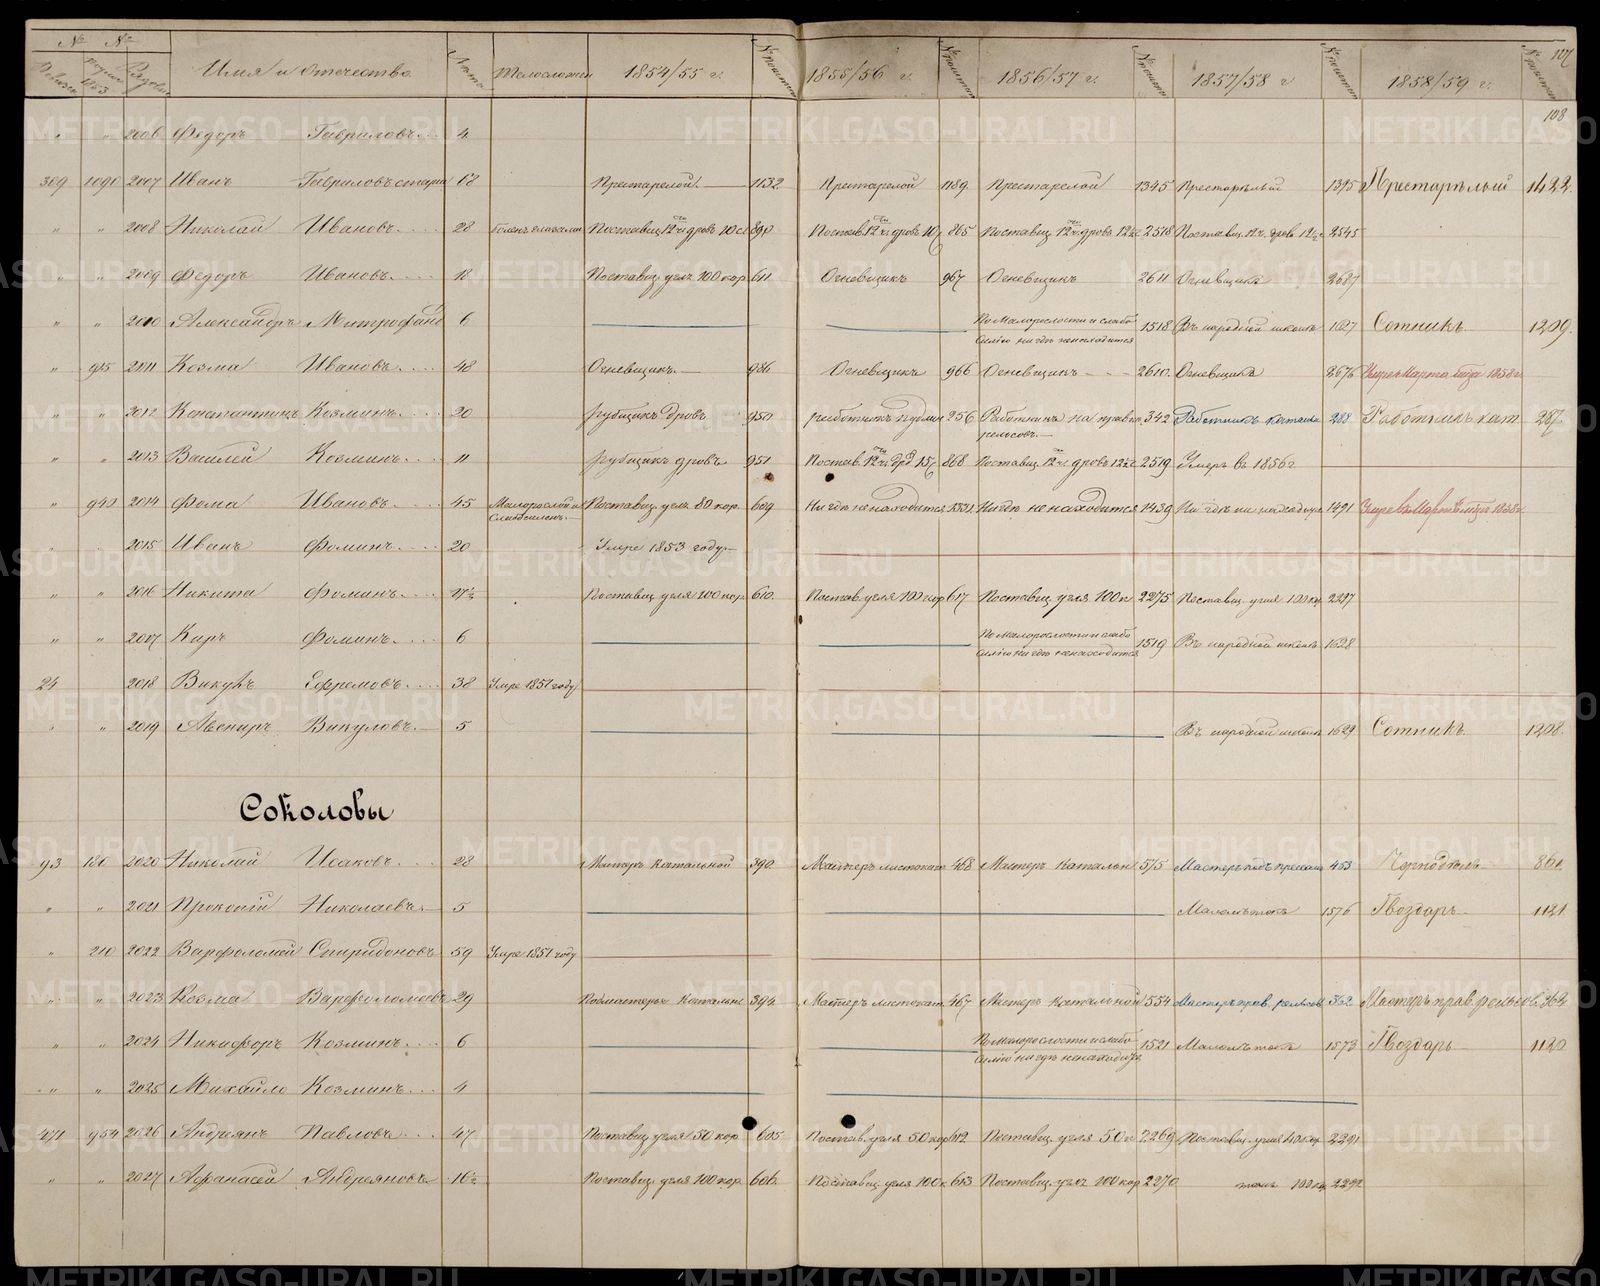 № № Имя и Отечество Лѣта Телосложен 1854/55 г. 1855/56 г. 1856/57 г. 1857/58 г 1858/59 г. 107
108
" " 2006 Федоръ Гавриловъ 4
309 1090 2007 Иванъ Гавриловъ старш 68 Престарелой 1132 Престарелой 1189 Престарелой 1345 Престарѣлый 1395 Престарѣлый 1422
" " 2008 Николай Ивановъ 28 Поставщ. 12 чет. дровъ 10 с 890 Постав. 12 чет. дровъ 10 865 Поставщ. 12 чет. дровъ 2518 Поставщ. 12 ч. дров. 2545
" " 2009 Федоръ Ивановъ 18 Поставщ. угля 100 кор. 611 Огневщикъ 967 Огневщикъ 2611 Огневщикъ 2687
" " 2010 Александръ Митрофано 6 По Малорослости и слабо силію нигдѣ не находится 1518 Въ народной школѣ 1627 Сотникъ 1209.
" 985 2011 Козма Ивановъ 48 Огневщикъ 986 Огневщикъ 966 Огневщикъ 2610 Огневщикъ 2676 Умре Марта 1858 г.
" " 2012 Константинъ Козминъ 20 рубщикъ дровъ 950 работникъ пудлин 256 Работникъ на правкѣ рельсовъ 342 Работникъ катальн 288 Работникъ кат. 287
" " 2013 Василей Козминъ 11 рубщикъ дровъ 951 Постав. 12 чет. дров 868 Поставщ. 12 чет. дровъ 2519 Умеръ въ 1856 г
" 949 2014 Фома Ивановъ 45 Малорослой и Слабосиленъ Поставщ. угля 80 кор. 609 Нигдѣ не находится Нигдѣ не находится 1439 Нигдѣ не находится 1491 Умре въ Мартѣ 1858 г
" " 2015 Иванъ Фоминъ 20 Умре 1853 году
" " 2016 Никита Фоминъ Поставщ. угля 100 кор. 610. Постав. угля 100 кор 617 Поставщ. угля 100 к 2275 Поставщ. угля 100 кор. 2297
" " 2017 Киръ Фоминъ 6 По Малорослости и слабо силію нигдѣ не находится 1519 Въ народной школѣ 1628
24 2018 Викулъ Ефремовъ 38 Умре 1851 году
" " 2019 Авениръ Викуловъ 5 Въ народной школѣ 1629 Сотникъ 1208.
Соколовы
93 180 2020 Николай Исаковъ 28 Мастеръ Катальной 390. Мастеръ листокат 468 Мастеръ Катальн 575 Мастеръ подъ прессом 453 Чернодѣлъ 861
" " 2021 Прокопій Николаевъ 5 1576 Гвоздарь 1121
" 210 2022 Варфоломей Спиридоновъ 59 Умре 1851 году
" " 2023 Козма Варфоломеевъ 29 Подмастерье Катальн. 394 Мастеръ листокат. 467 Мастеръ Катальной 554 Мастеръ прав. рельсов 362 Мастеръ прав. рельсов. 364
" " 2024 Никифоръ Козминъ 6 По малорослости и слабо силію нигдѣ не находится 1521 1573 Гвоздарь 1120
" " 2025 Михайло Козминъ 4
471 954 2026 Андреянъ Павловъ 47 Поставщ. угля 50 кор. 605 Постав. угля 50 кор 612 Поставщ. угля 50 к 2269 Поставщ. угля 40 кор. 2291
" " 2027 Афанасей Андреяновъ Поставщ. угля 100 кор. 606 Поставщ. угля 100 к 613 Поставщ. угля 100 кор 2270 тожъ 100 кор. 2292
METRIKI.GASO-URAL.RU